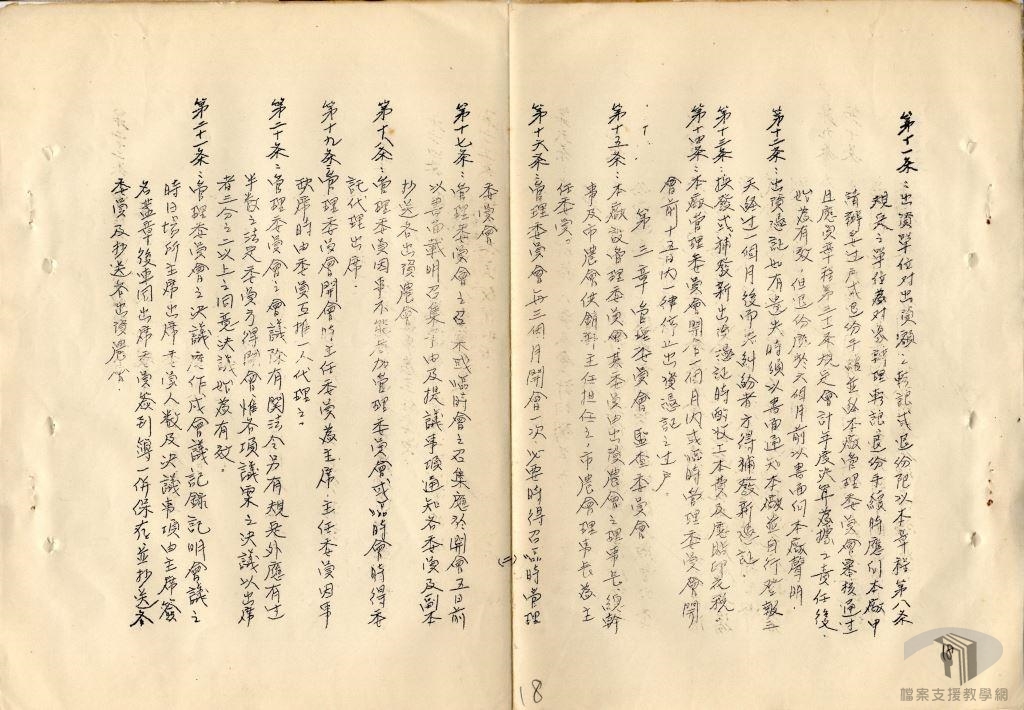 第十一条：出資單位对出資額之轉記或退份限以本章程第八条
規定之單位為对象辦理轉記退份手續時應向本廠申
請辦妥过戶或退份手續並經本廠管理委員會審核通过
且應依章程第三十条規定會計年度決算為擔之責任後，
始為有效，但退份應於六個月前以書面向本廠聲明，
第十二条：出資憑記如有遺失時須以書面通知本廠並自行登報三
天經过一個月後而無糾紛者方得補發新憑記。
第十三条：換發或補發新出資憑記時酌收工本費及應貼印花稅
第十四条：本廠管理委員會開會一個月內或臨時管理委員會開
會前十五日內一律停止出資憑記之过戶。
第三章 管理委員會、監查委員會
第十五条：本廠設管理委員會其委員由出資農會之理事長、總幹
事及市農會供銷部主任担任之市農會理事長為主
任委員。
第十六条：管理委員會每三個月開會一次必要時得召臨時管理
(二)
18
委員會
第十七条：管理委員會之召集或臨時會之召集應於開會五日前
以書面載明召集事由及提議事項通知各委員及副本
抄送各出資農會
第十八条：管理委員因事不能參加管理委員會或臨時會時得委
託代理出席．
第十九条：管理委員會開會時主任委員為主席，主任委員因事
缺席時由委員互推一人代理之。
第二十条：管理委員會之會議除有関法令另有規定外應有过
半数之法定委員方得開會，惟各項議案之決議以出席
者三分之二以上之同意決議始為有效．
第二十一条：管理委員會之決議應作成會議記錄記明會議之
時日場所主席出席委員人数及決議事項由主席簽
名蓋章後連同出席委員簽到簿一併保存並抄送各
委員及抄送各出資農會
18
檔案支援教學網